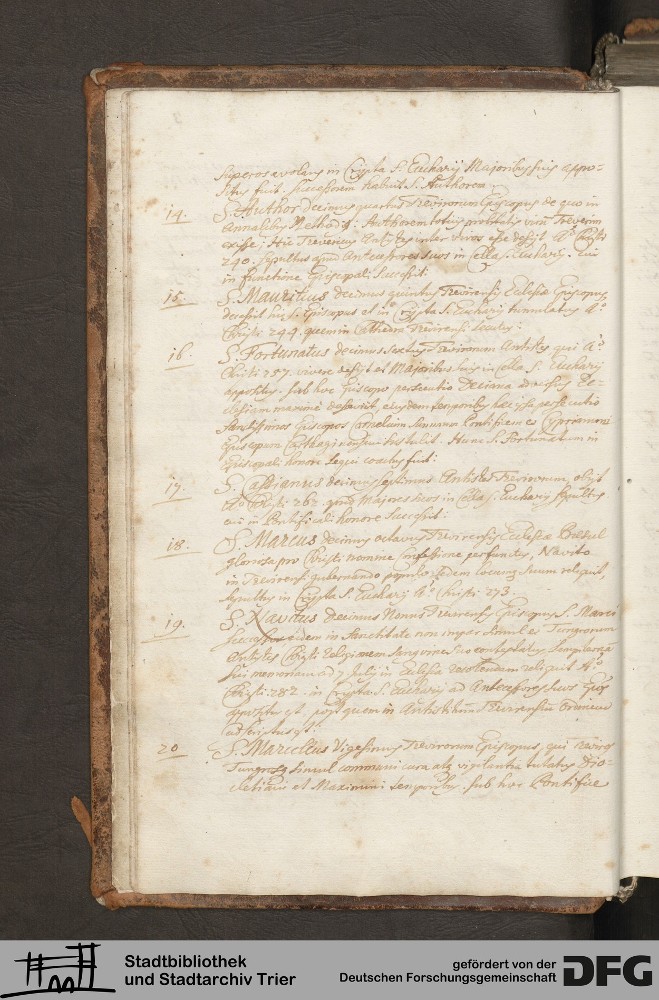 superos avolans in Crypta S. Eucharij Majoribus suis appo-
situs fuit. Successorem habuit S. Authorem.
14. S. Author decimus quartus Trevirorum Episcopus de quo in
annalibus Methodij: Authorem totius probitatis virum Treverim
exisse; Hic Trevericus Antistes inter vivos esse desijt Aō Christi
240. sepultus apud Antecessores suos in Cella S. Eucharij. cui
in functione Episcopali successit
15. S. Mauritius decimus quintus Trevirensis Ecclesiæ Episcopus,
decessit hic S. Episcopus et in Crypta S. Eucharij tumulatus Aō
Christi 244. quem in Cathedra Trevirensi
16. S. Fortunatus decimus Sextus Trevirorum Antistes qui Aō
Christi 257. vivere desijt et Majoribus suis in Cella S. Eucharij
appositus. sub hoc Episcopo persecutio Deciana Ec-
clesiam maximè eiusdem temporibus persecutio
Sanctissimos Episcopos Cornelium Summum Pontificem et Cyprianum
Episcopum Carthaginensem sustulit. Hunc S. Fortunatum in
Episcopali honore sequi coactus fuit:
17. S. Cassianus decimus septimus Antistes Trevirorum, obijt
Aō Christi 262. apud Majores suos in Cella S. Eucharij sepultus
cui in Pontificali honore successit:
18. S. Marcus decimus octavus Trevirensis Ecclesiæ Præsul
gloriosa pro Christi nomine Confessione perfunctus, Navito
in Trevirensi gubernando populo sedem locumq suum reliquit,
sepultus in Crypta S. Eucharij Aō Christi 273.
19. S. Navitus decimus Nonus Trevirensis Episcopus S. Marci
successor eidem in Sanctitate non impar simul et Tungrorum
Antistes Christi religionem sanguine suo contestatus
sui memoriam ad 7 Julij in Ecclesia recolendam reliquit Aō
Christi 282. in Crypta S. Eucharij ad Antecessores suos
appositus est. post quem in Antistitum Trevirensium ordinem
adscriptus est:
20 S. Marcellus Vigesimus Trevirorum Episcopus, qui
Tungrosq simul communi cura atq vigilantia tutatus Dio-
cletiani et Maximini temporibus. sub hoc Pontifice
Stadtbibliothek
und Stadtarchiv Trier
gefördert von der
Deutschen Forschungsgemeinschaft
DFG